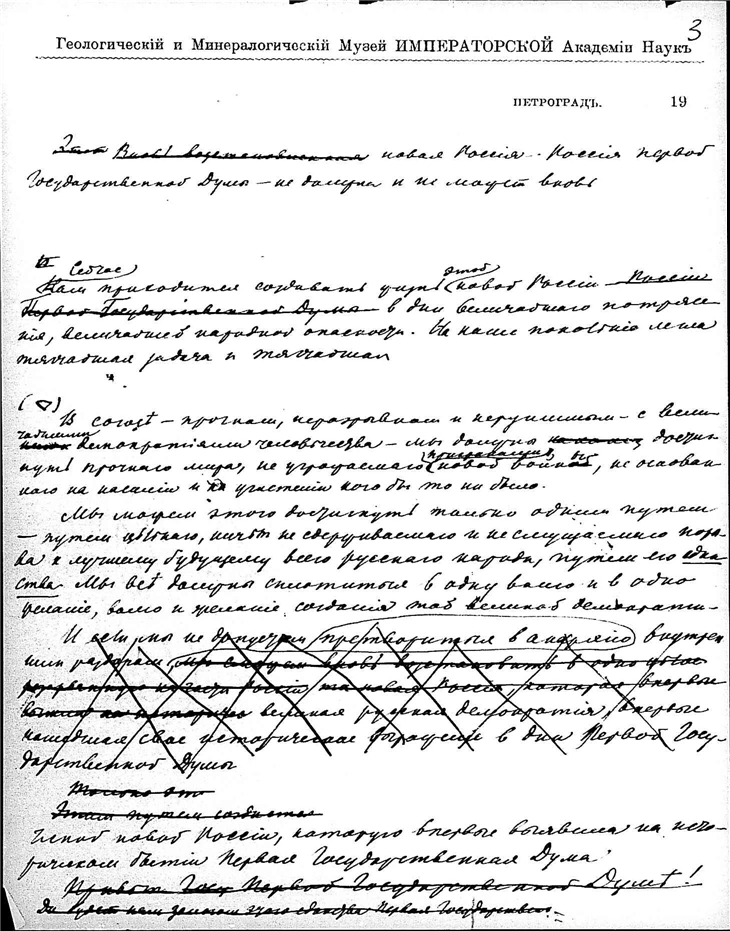 3
Геологическій и Минералогическій Музей ИМПЕРАТОРСКОЙ Академіи Наукъ
ПЕТРОГРАДЪ. 19
Этой Вновь возстановленная новая Россія. Россія первой
Государственной Думы – не должна и не может вновь
II Сейчас этой
Нам приходится создавать новой Россіи – Россіи
Первой Государственной Думы – в дни величайшаго потрясе-
нія, величайшей народной опасности. На наше поколѣніе легла
тягчайшая задача и тягчайшая
В союзѣ – прочном, неразрывном и нерушимом – с вели-
чайшими демократіями человѣчества – мы должны достиг-
нуть прочнаго мира, не угрожаемаго новой войной, не основан-
наго на насиліи и угнетеніи кого бы то ни было.
Мы можем этого достигнуть только одним путем
– путем цѣльнаго, ничѣм не сдерживаемаго и не смущаемаго поры-
ва к лучшему будущему всего русскаго народа, путем его един-
ства. Мы всѣ должны сплотиться в одну волю и в одно
желаніе, волю и желаніе созданія той великой демократи-
И если мы не допустим претвориться в анархію внутрен-
ним раздорам, мы сможем вновь возстановить в одно цѣлое
Россіи та новая Россія, которая впервые
великая русская демократія, впервые
нашедшая свое историческое выраженіе в дни Первой Госу-
дарственной Думы
Только это
Этим путем создается
ческой новой Россіи, которую впервые выявила на исто-
рическом бытіи Первая Государственная Дума
Привѣт Госу Первой Государственной Думѣ!
Да будет нам этого единства Первая Государствен.